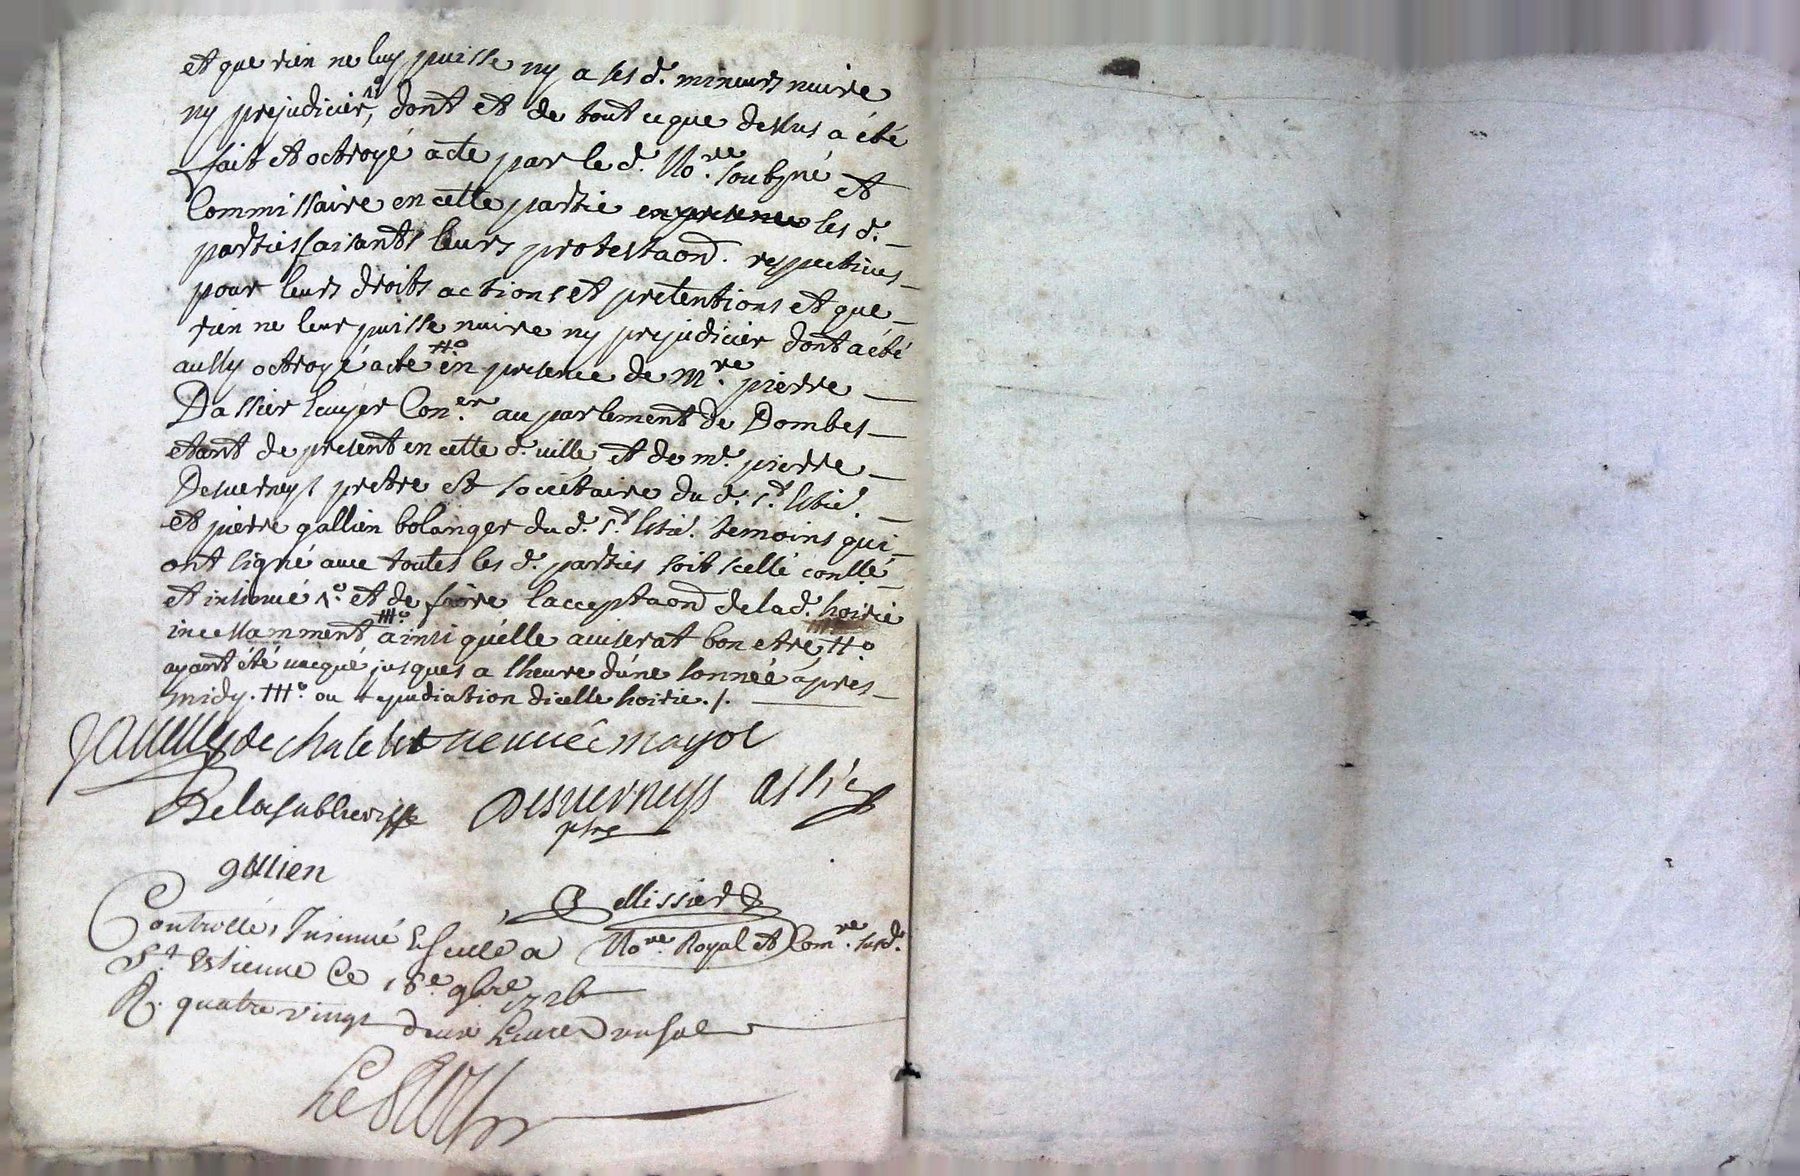 et que rien ne luy puisse ny a ses d. mineurs nuire
ny prejudicier, 1° dont et de tout ce que dessus a été
fait et octroyé acte par le d. No.re soubsné et
Commissaire en cette partie en presence les d.
parties faisants leurs protestaon. respectives
pour leurs droits actions et pretentions et que
rien ne leur puisse nuire ny prejudicier dont a été
aussy octroyé acte #° en presence de m.re pierre
Dassier Ecuyer Con.er au parlement de Dombes
etant de present en cette d. ville et de m.e pierre
Desverneys pretre et societaire du d. s.t Estie.
et pierre gallien bolanger du d. s.t Estie. temoins qui
ont signé avec toutes les d. parties soit scellé conllé
et insinué 1.° et de faire lacceptaon de la d. hoirie
incessamment ###° ainsi quélle aviserat bon etre #°
ayant été vacqué jusques a lheure dúne sonneé áprés
midy. ###° ou repudiation dicelle hoirie ./.
de chatelut veuveé mayol
Delasablieresse Desverneys assié
ptre
gallien
Pellissier
Controllé, Insinué & scellé a No.re Royal et Com.re susd.
S.t Estienne Ce 18.e 9bre 1726
R. quatre vingt deux livres un sol